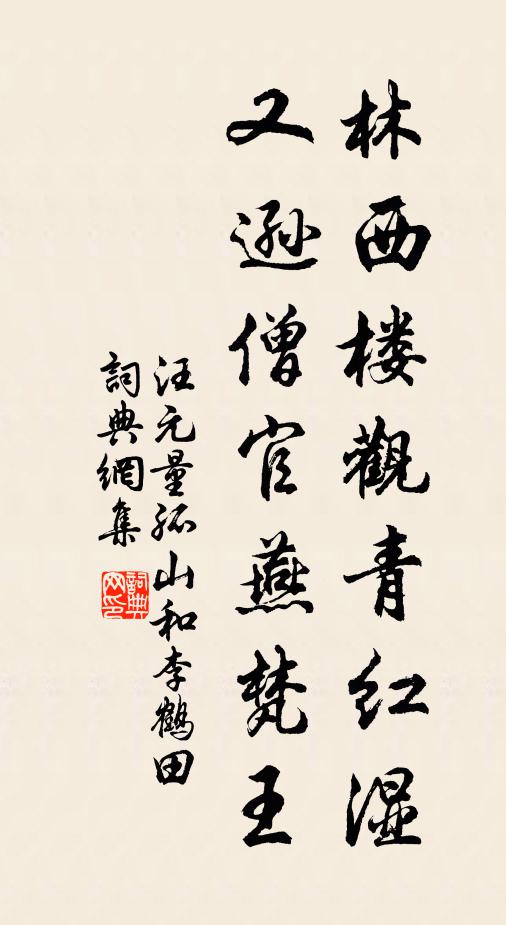 林西楼觀青红湿
又遜僧官燕梵王
汪元量孤山和李鶴田
詞典網集
詞典网印